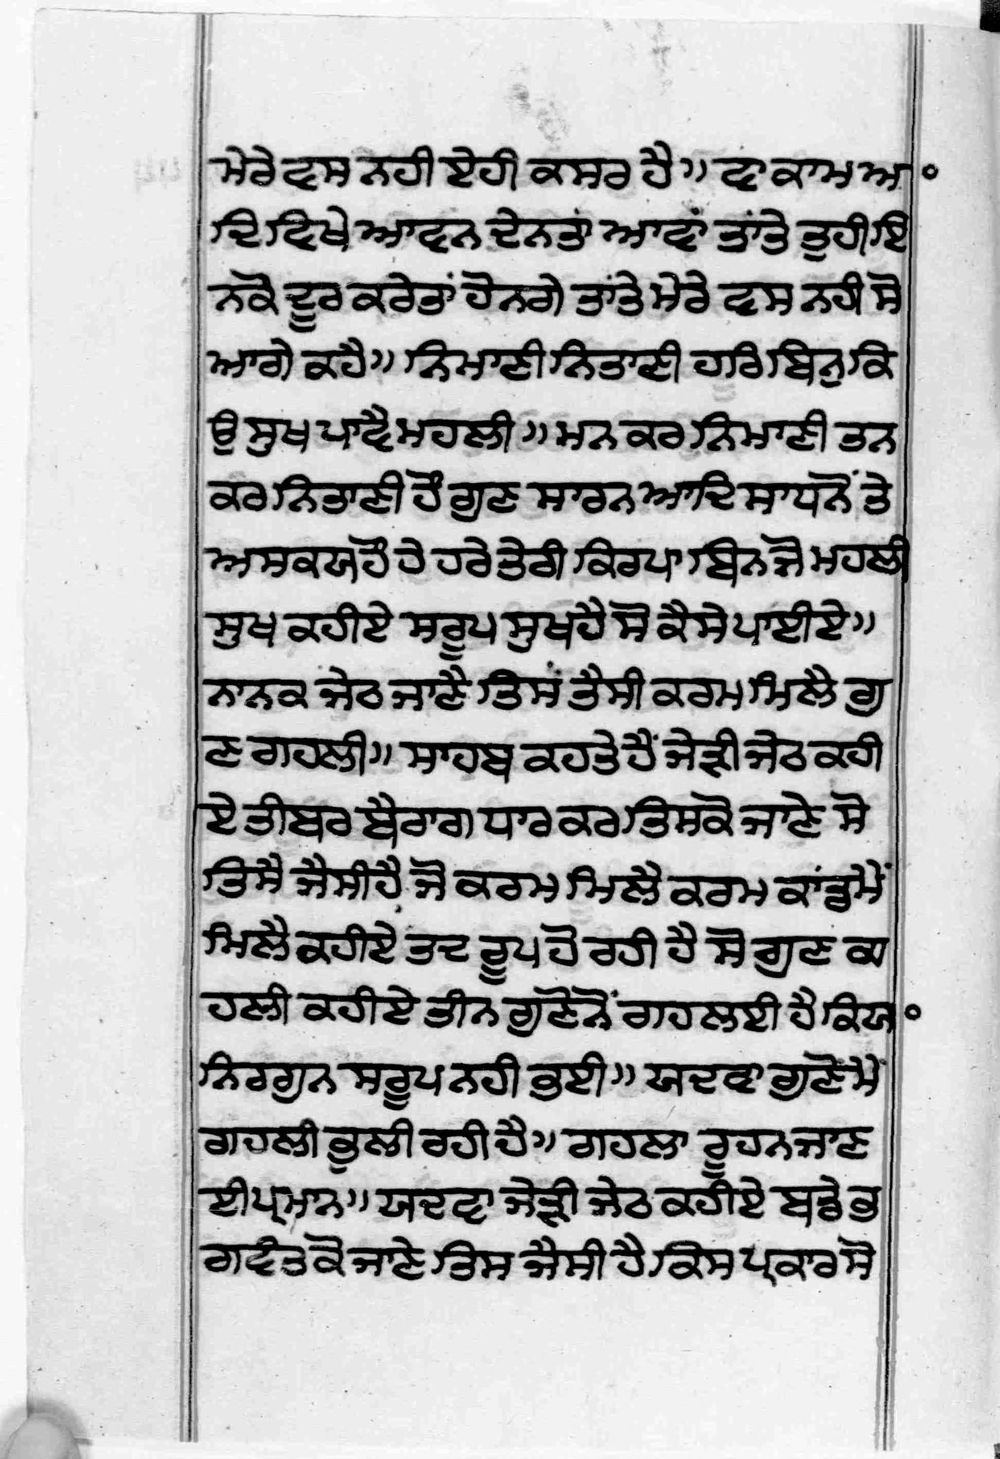 ਮੇਰੇ ਵਸ ਨਹੀ ਏਹੀ ਕਸਰ ਹੈ॥ ਵਾ ਕਾਮ ਅ॰
ਦਿ ਵਿਖੇ ਆਵਨ ਦੇਨ ਤਾਂ ਆਵਾਂ ਤਾਂਤੇ ਤੁਹੀ ਇ
ਨਕੋ ਦੂਰ ਕਰੇ ਤਾਂ ਹੋਨਗੇ ਤਾਂਤੇ ਮੇਰੇ ਵਸ ਨਹੀ ਸੋ
ਆਗੇ ਕਹੈ॥ ਨਿਮਾਣੀ ਨਿਤਾਣੀ ਹਰਿ ਬਿਨੁ ਕਿ
ਉ ਸੁਖ ਪਾਵੈ ਮਹਲੀ॥ ਮਨ ਕਰ ਨਿਮਾਣੀ ਤਨ
ਕਰ ਨਿਤਾਣੀ ਹੌਂ ਗੁਣ ਸਾਰਨ ਆਦਿ ਸਾਧਨੋਂ ਤੇ
ਅਸਕਯ ਹੌਂ ਹੇ ਹਰੇ ਤੇਰੀ ਕਿਰਪਾ ਬਿਨ ਜੋ ਮਹਲੀ
ਸੁਖ ਕਹੀਏ ਸਰੂਪ ਸੁਖ ਹੈ ਸੋ ਕੈਸੇ ਪਾਈਏ॥
ਨਾਨਕ ਜੇਠ ਜਾਣੈ ਤਿਸੁ ਤੈਸੀ ਕਰਮ ਮਿਲੈ ਗੁ
ਣ ਗਹਲੀ॥ ਸਾਹਬ ਕਹਤੇ ਹੈਂ ਜੇੜੀ ਜੇਠ ਕਹੀ
ਏ ਤੀਬਰ ਬੈਰਾਗ ਧਾਰ ਕਰ ਤਿਸਕੋ ਜਾਣੇ ਸੋ
ਤਿਸੈ ਜੈਸੀ ਹੈ ਜੋ ਕਰਮ ਮਿਲੈ ਕਰਮ ਕਾਂਡ ਮੇਂ
ਮਿਲੈ ਕਹੀਏ ਤਦ ਰੂਪ ਹੋ ਰਹੀ ਹੈ ਸੋ ਗੁਣ
ਹਲੀ ਕਹੀਏ ਤੀਨ ਗੁਣੋਨੋਂ ਗਹ ਲਈ ਹੈ ਕਿਯ॰
ਨਿਰਗੁਨ ਸਰੂਪ ਨਹੀ ਭੁਈ॥ ਯਦਵਾ ਗੁਣੋਂ ਮੇਂ
ਗਹਲੀ ਭੂਲੀ ਰਹੀ ਹੈ॥ ਗਹਲਾ ਰੂਹ ਨ ਜਾਣ
ਈ ਪ੍ਰਮਾਨ॥ ਯਦਵਾ ਜੇੜੀ ਜੇਠ ਕਹੀਏ ਬਡੇ ਭ
ਗਵੰਤ ਕੋ ਜਾਣੇ ਤਿਸ ਜੈਸੀ ਹੈ ਕਿਸ ਪ੍ਰਕਾਰ ਸੋ